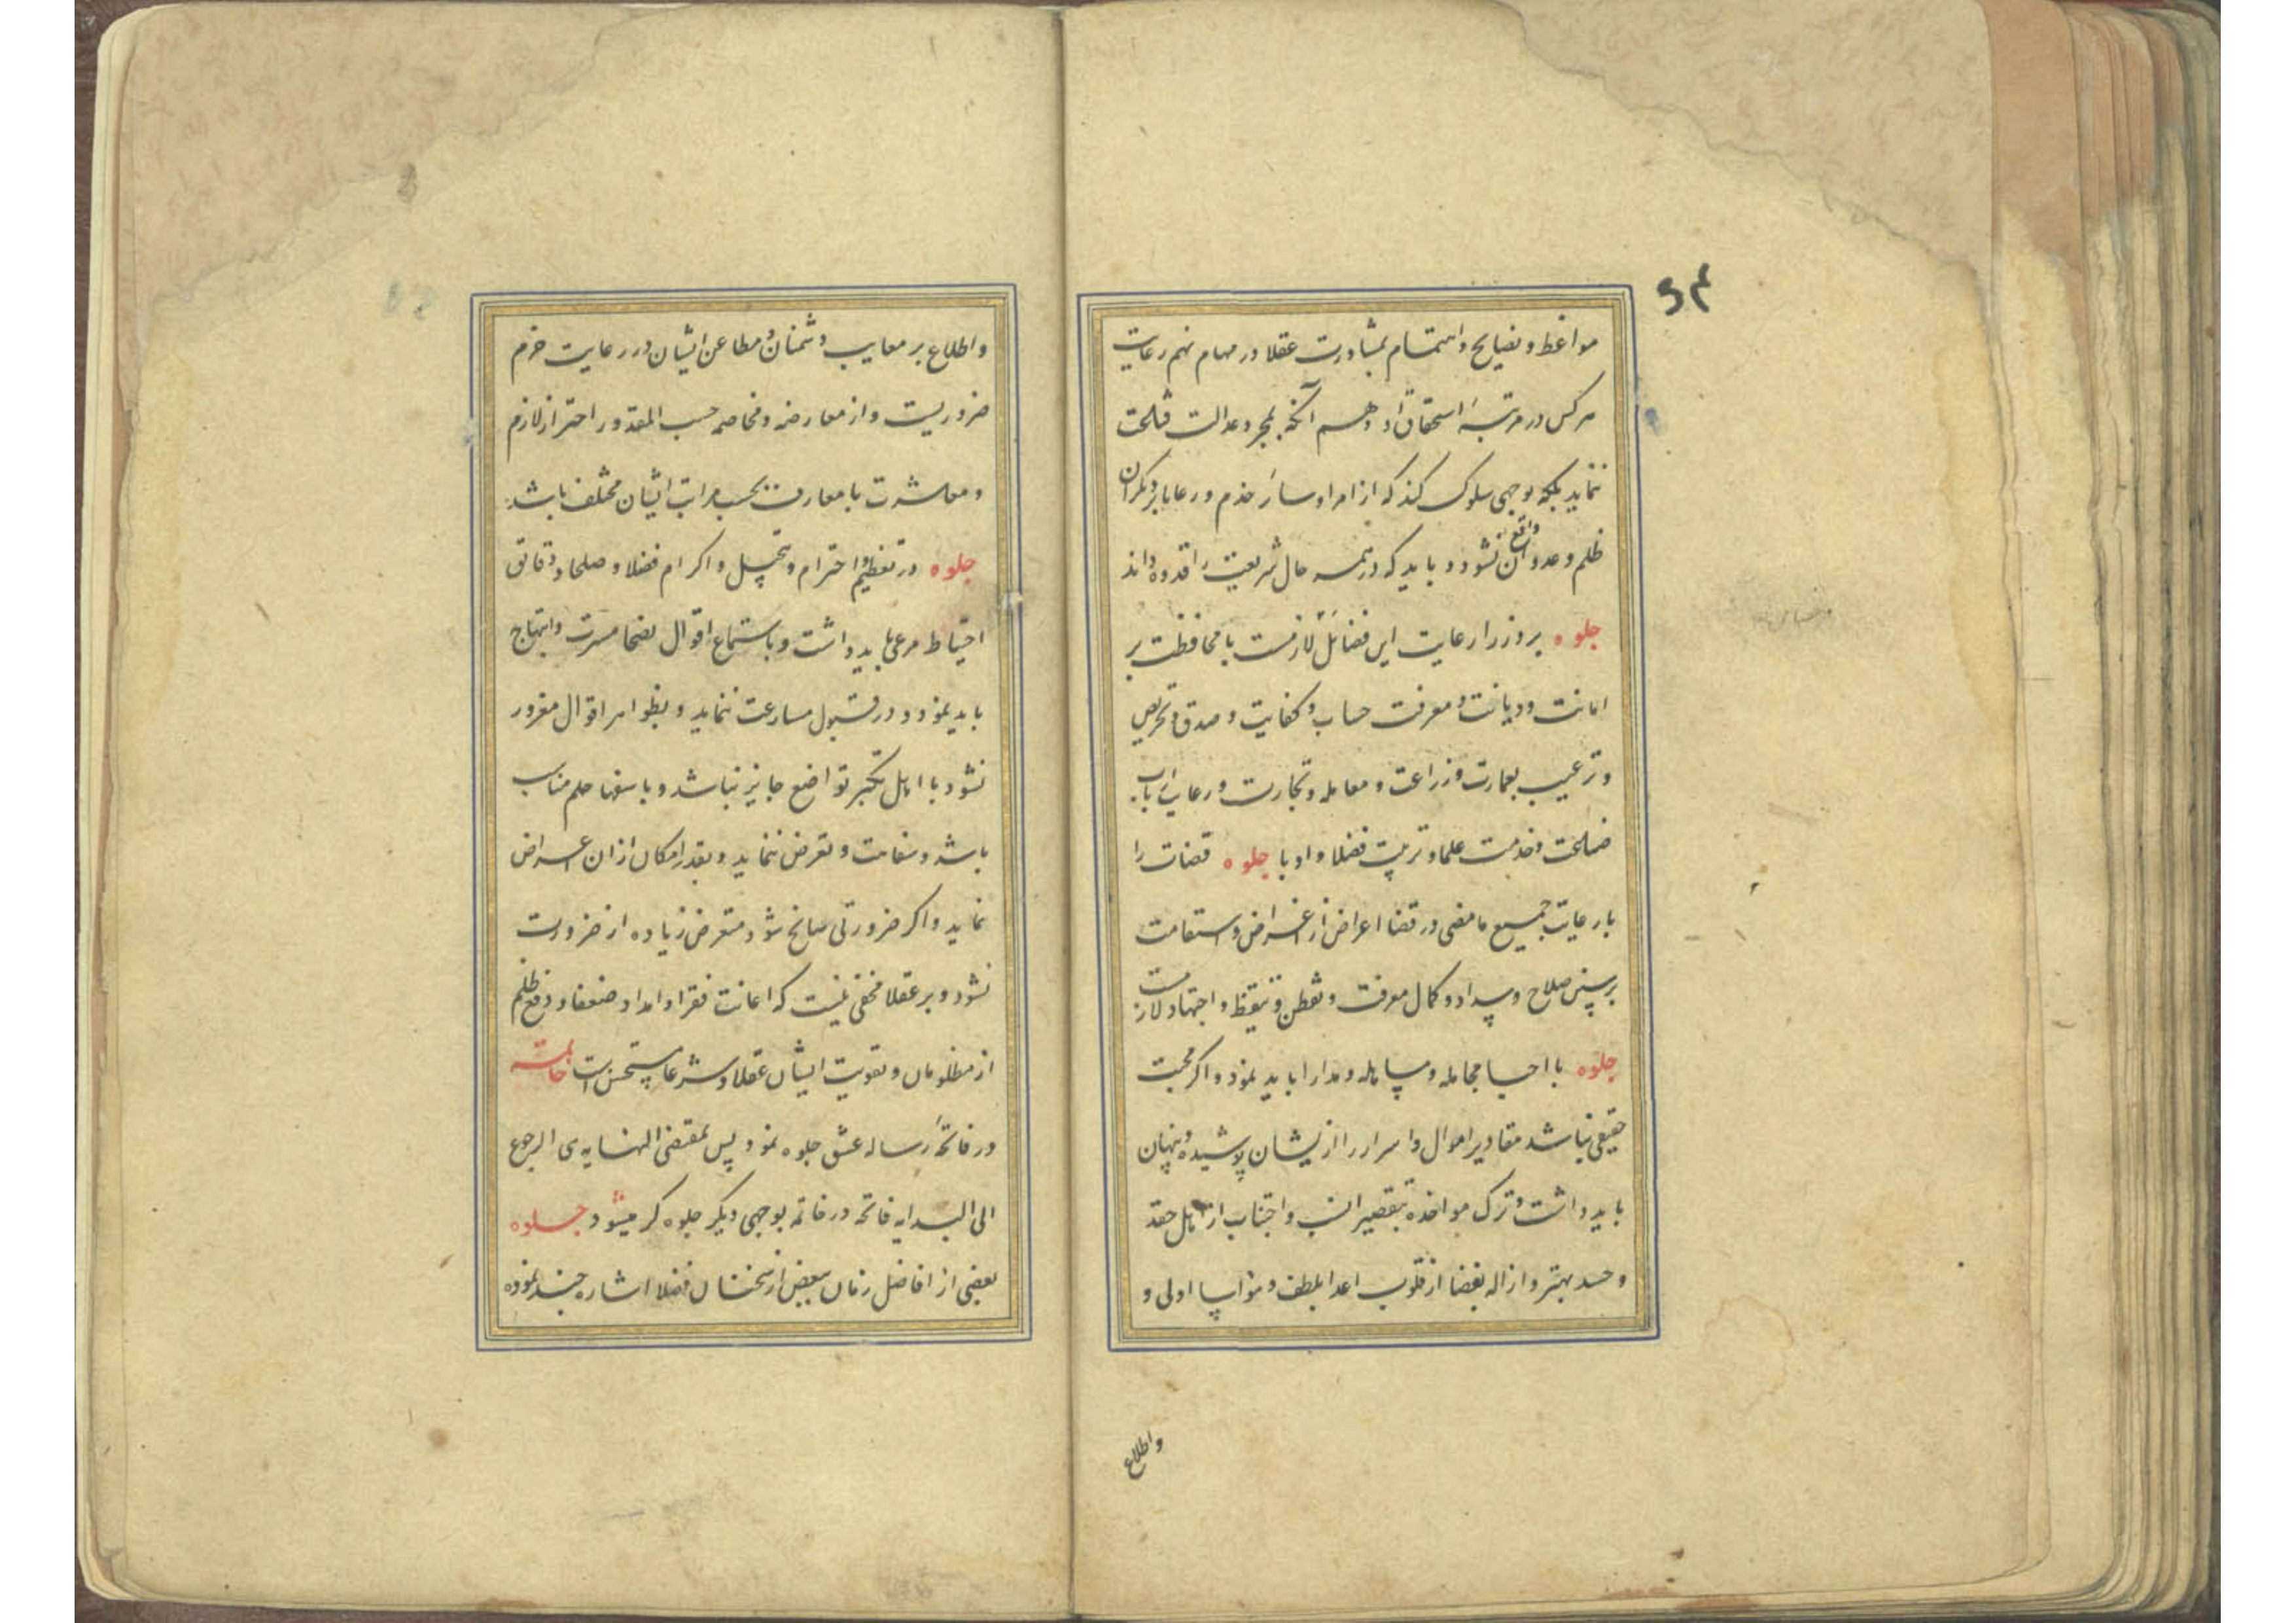 مواعظ و نصایح و اهتمام بمشاورت عقلا در مهام نهم رعایت
هرکس در مرتبهٔ استحقاق او دهم آنکه بمجرد عدالت
ننماید بلکه بوجهی سلوک کند که از امرا و سائر خدم و رعایا بر دیگران
ظلم و عدوان واقع نشود و باید که در همه حال شریعت را قدوه داند
جلوه بر وزرا رعایت این فضائل لازمست با محافظت بر
امانت و دیانت و معرفت حساب و کفایت و صدق و تحریص
و ترغیب بعمارت و زراعت و معامله و تجارت و رعایت ارباب
و خدمت علما و تربیت فضلا و ادبا جلوه قضات را
با رعایت جمیع ما مضی در قضا اعراض از اغراض و استقامت
بر سنن صلاح و سداد و کمال معرفت و تفطن و تیقظ و اجتهاد لازمست
جلوه با احبا مجامله و مساهله و مدارا باید نمود و اگر محبت
حقیقی نباشد مقادیر اموال و اسرار را ازیشان پوشیده و پنهان
باید داشت و ترک مواخذه بتقصیر انسب و اجتناب از اهل حقد
و حسد بهتر و ازاله بغضا از قلوب اعدا بلطف و مواسا اولی و
واطلاع
و اطلاع بر معایب دشمنان و مطاعن ایشان در رعایت حزم
ضروریست و از معارضه و مخاصمه حسب المقدور احتراز لازم
و معاشرت با معارف بحسب مراتب ایشان مختلف باشد
جلوه در تعظیم و احترام و تبجیل و اکرام فضلا و صلحا دقائق
احتیاط مرعی باید داشت و باستماع اقوال نصحا مسرت و ابتهاج
باید نمود و در قبول مسارعت ننماید و بظواهر اقوال مغرور
نشود با اهل تکبر تواضع جایز نباشد و با سفها حلم مناسب
باشد و سفاهت و تعرض ننماید و بقدر امکان ازان اعراض
نماید و اکر ضرورتی سانح شود متعرض زیاده از ضرورت
نشود و بر عقلا مخفی نیست که اعانت فقرا و امداد ضعفا و دفع ظلم
از مظلومان و تقویت ایشان عقلا و شرعا مستحسن است خاتمه
در فاتحهٔ رساله عشق جلوه نمود پس بمقتضی النهایه هی الرجوع
الی البدایه فاتحه در خاتمه بوجهی دیگر جلوه کر میشود جلوه
بعضی از افاضل زمان ببعض از سخنان فضلا اشاره چند نموده